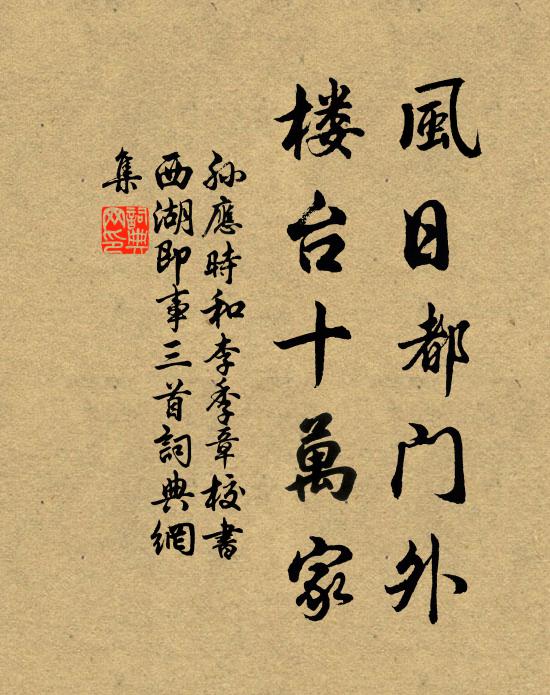 風日都门外
楼台十萬家
孙應時和李季章校書
西湖即事三首詞典網
集
詞典
网印